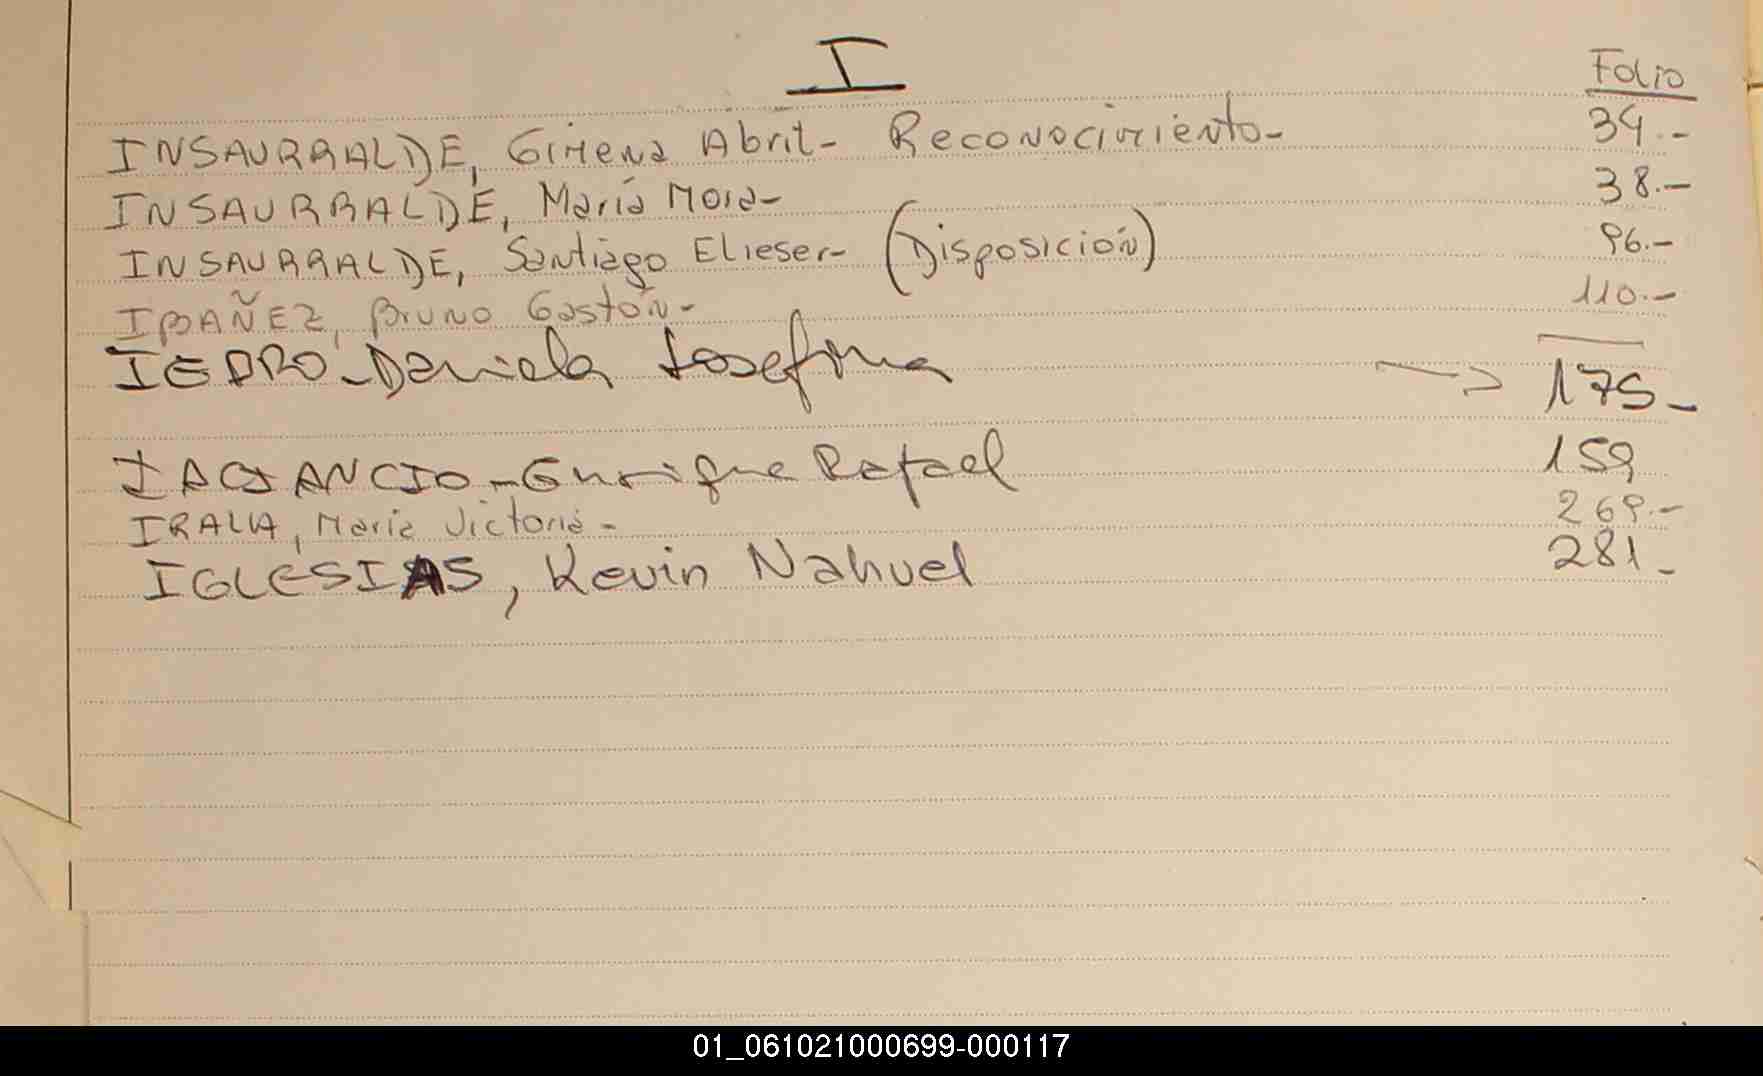 I
Folio
INSAURRALDE, Gimena Abril- Reconocimiento- 34.-
INSAURRALDE, María Mora- 38.-
INSAURRALDE, Santiago Elieser- (Disposición) 96.-
IBAÑEZ, Bruno Gastón- 110.-
IEDRO-Daniela Josefina → 175-
Enrique Rafael 159
IRALA, María Victoria- 269.-
IGLESIAS, Kevin Nahuel 281-
01_061021000699-000117